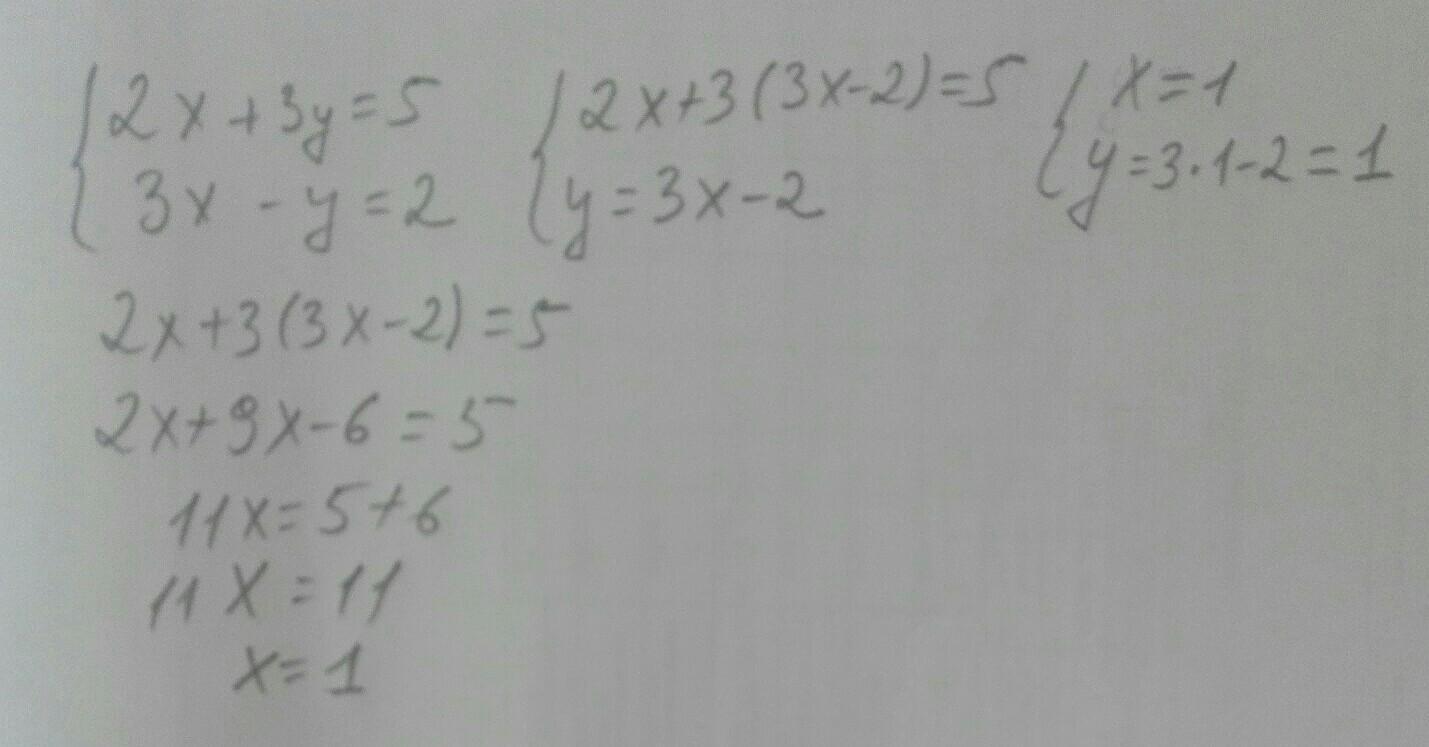 {2x+3y=5 {2x+3(3x-2)=5 {x=1
3x-y=2 y=3x-2 y=3·1-2=1
2x+3(3x-2)=5
2x+9x-6=5
11x=5+6
11x=11
x=1